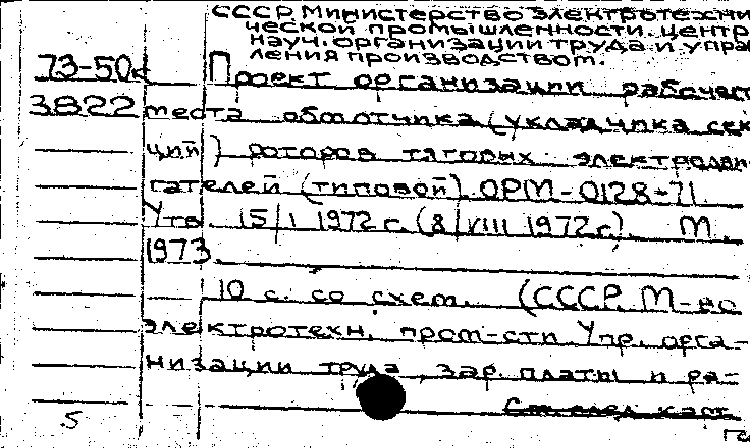 СССР. Министерство электротехни
ческой промышленности. Центр
науч. организации труда и упра
ления производством.
73-50к Проект организации рабочег
3822 места обмотчика (укладчика сек
ций) роторов тяговых электродви
гателей (типовой). ОРМ-0128-71.
Утв. 15/I 1972 г. (8/VIII 1972 г.). М.
1973.
10 с. со схем. (СССР. М-во
электротехн. пром-сти Упр. орга-
низации труда, зар. платы и ра-
См. след. карт.
5